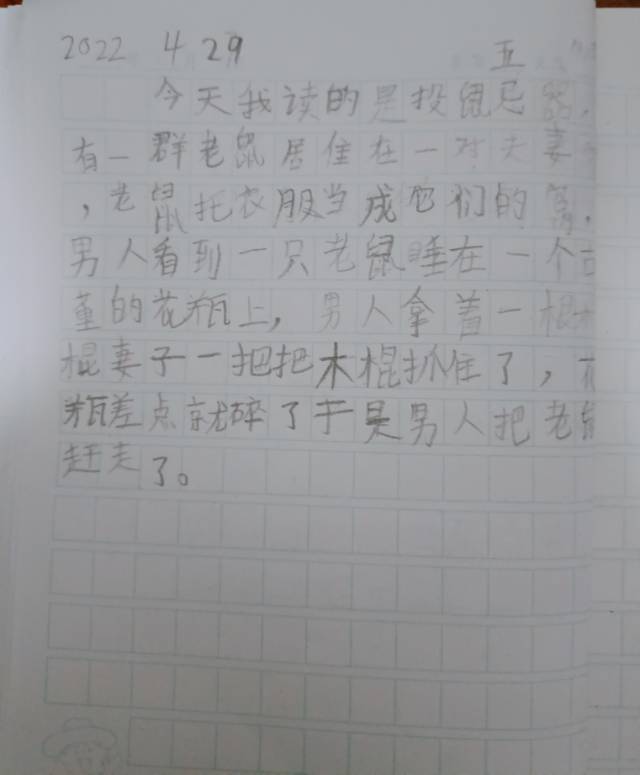 2022 4 29 五
今天我读的是投鼠忌器,
有一群老鼠居住在一对夫妻
,老鼠把衣服当成它们的窝,
男人看到一只老鼠睡在一个古
董的花瓶上,男人拿着一根木
棍妻子一把把木棍抓住了,花
瓶差点就碎了于是男人把老鼠
赶走了。